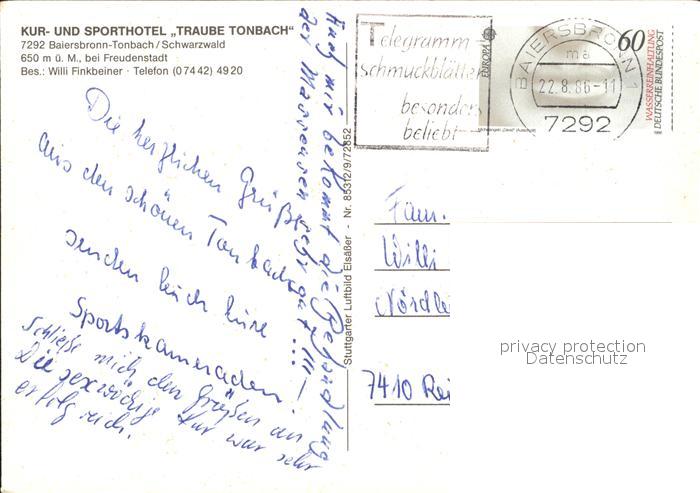 KUR- UND SPORTHOTEL „TRAUBE TONBACH"
7292 Baiersbronn-Tonbach/Schwarzwald
650 m ü. M., bei Freudenstadt
Bes.: Willi Finkbeiner · Telefon (07442) 4920
Die herzlichen Grüße
aus den schönen Tonbach
senden Euch Eure
Sportskameraden.
Schließe mich den Grüßen an
Die sexwöchige Kur war sehr
erfolgreich.
Auch mir bekommt die Behandlung
der Masseusen sehr gut !!! –
...
Stuttgarter Luftbild Elsäßer - Nr. 85312/9/72852
Telegramm
Schmuckblätter
besonders
beliebt
EUROPA
60
WASSERREINHALTUNG
DEUTSCHE BUNDESPOST
BAIERSBRONN 1
ma
22.8.86-11
7292
Fam.
Willi
Nördle
7410 Rei
privacy protection
Datenschutz